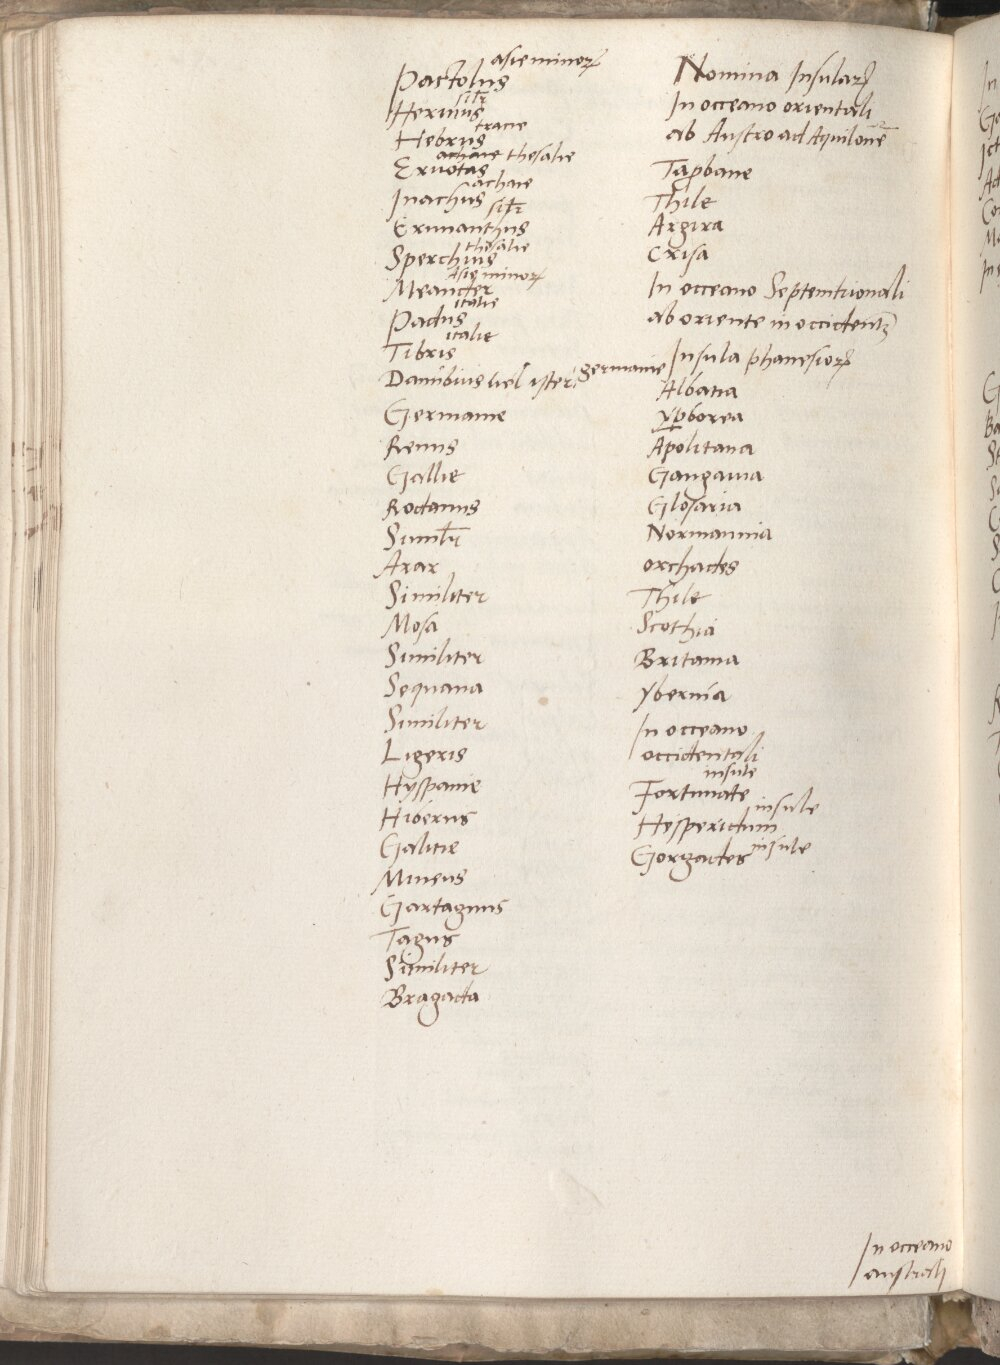 Pactolus asie minorꝝ
Hermus silr̄
Hebrus tracie
Eruotas achaie thesalie
Inachus achaie
Erimanthus silr̄
Sperchius thesalie
Meander Asie minorꝝ
Padus italie
Tibris italie
Danubius uel ister germanie
Germanie
Renus
Gallie
Rodanus
Similr̄
Arar
Similiter
Mosa
Similiter
Sequana
Similiter
Ligeris
Hyspanie
Hiberus
Galitie
Mineus
Gartagnus
Tagus
Similiter
Bragada
Nomina Insularꝝ
In occeano orientali
ab Austro ad Aquilonē
Taꝓbane
Thile
Argira
Crisa
In occeano Septemtrionali
ab oriente in occidentē
Insula phanesiorꝝ
Albatia
yꝑborea
Apolitana
Gangauia
Glosaria
Normannia
orchades
Thile
Scothia
Britania
ybernia
In occeano
occidentali
Fortunate insule
Hesperidum insule
Gorgades insule
In occeano
australi